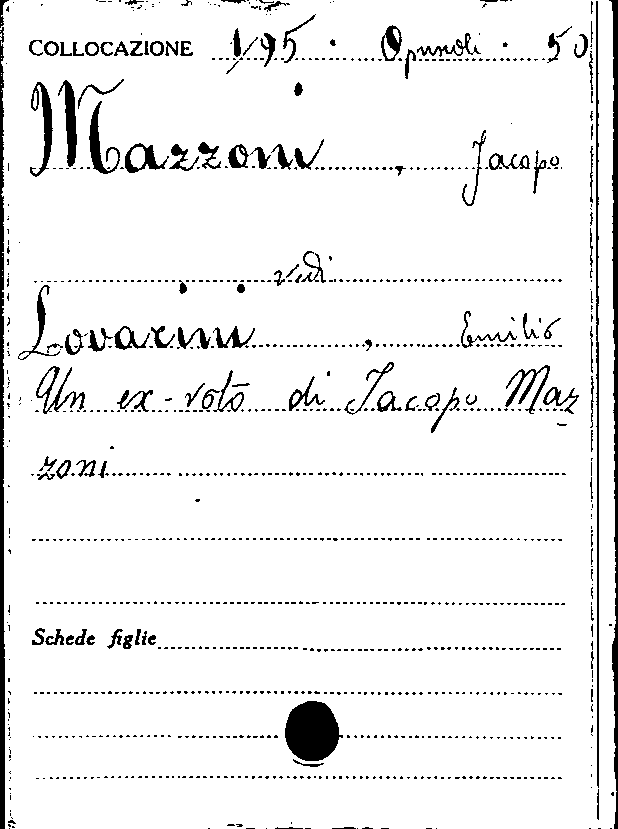 COLLOCAZIONE 1/95 · Opuscoli · 50
Mazzoni, Jacopo
vedi
Lovarini, Emilio
Un ex-voto di Jacopo Maz
zoni.
Schede figlie